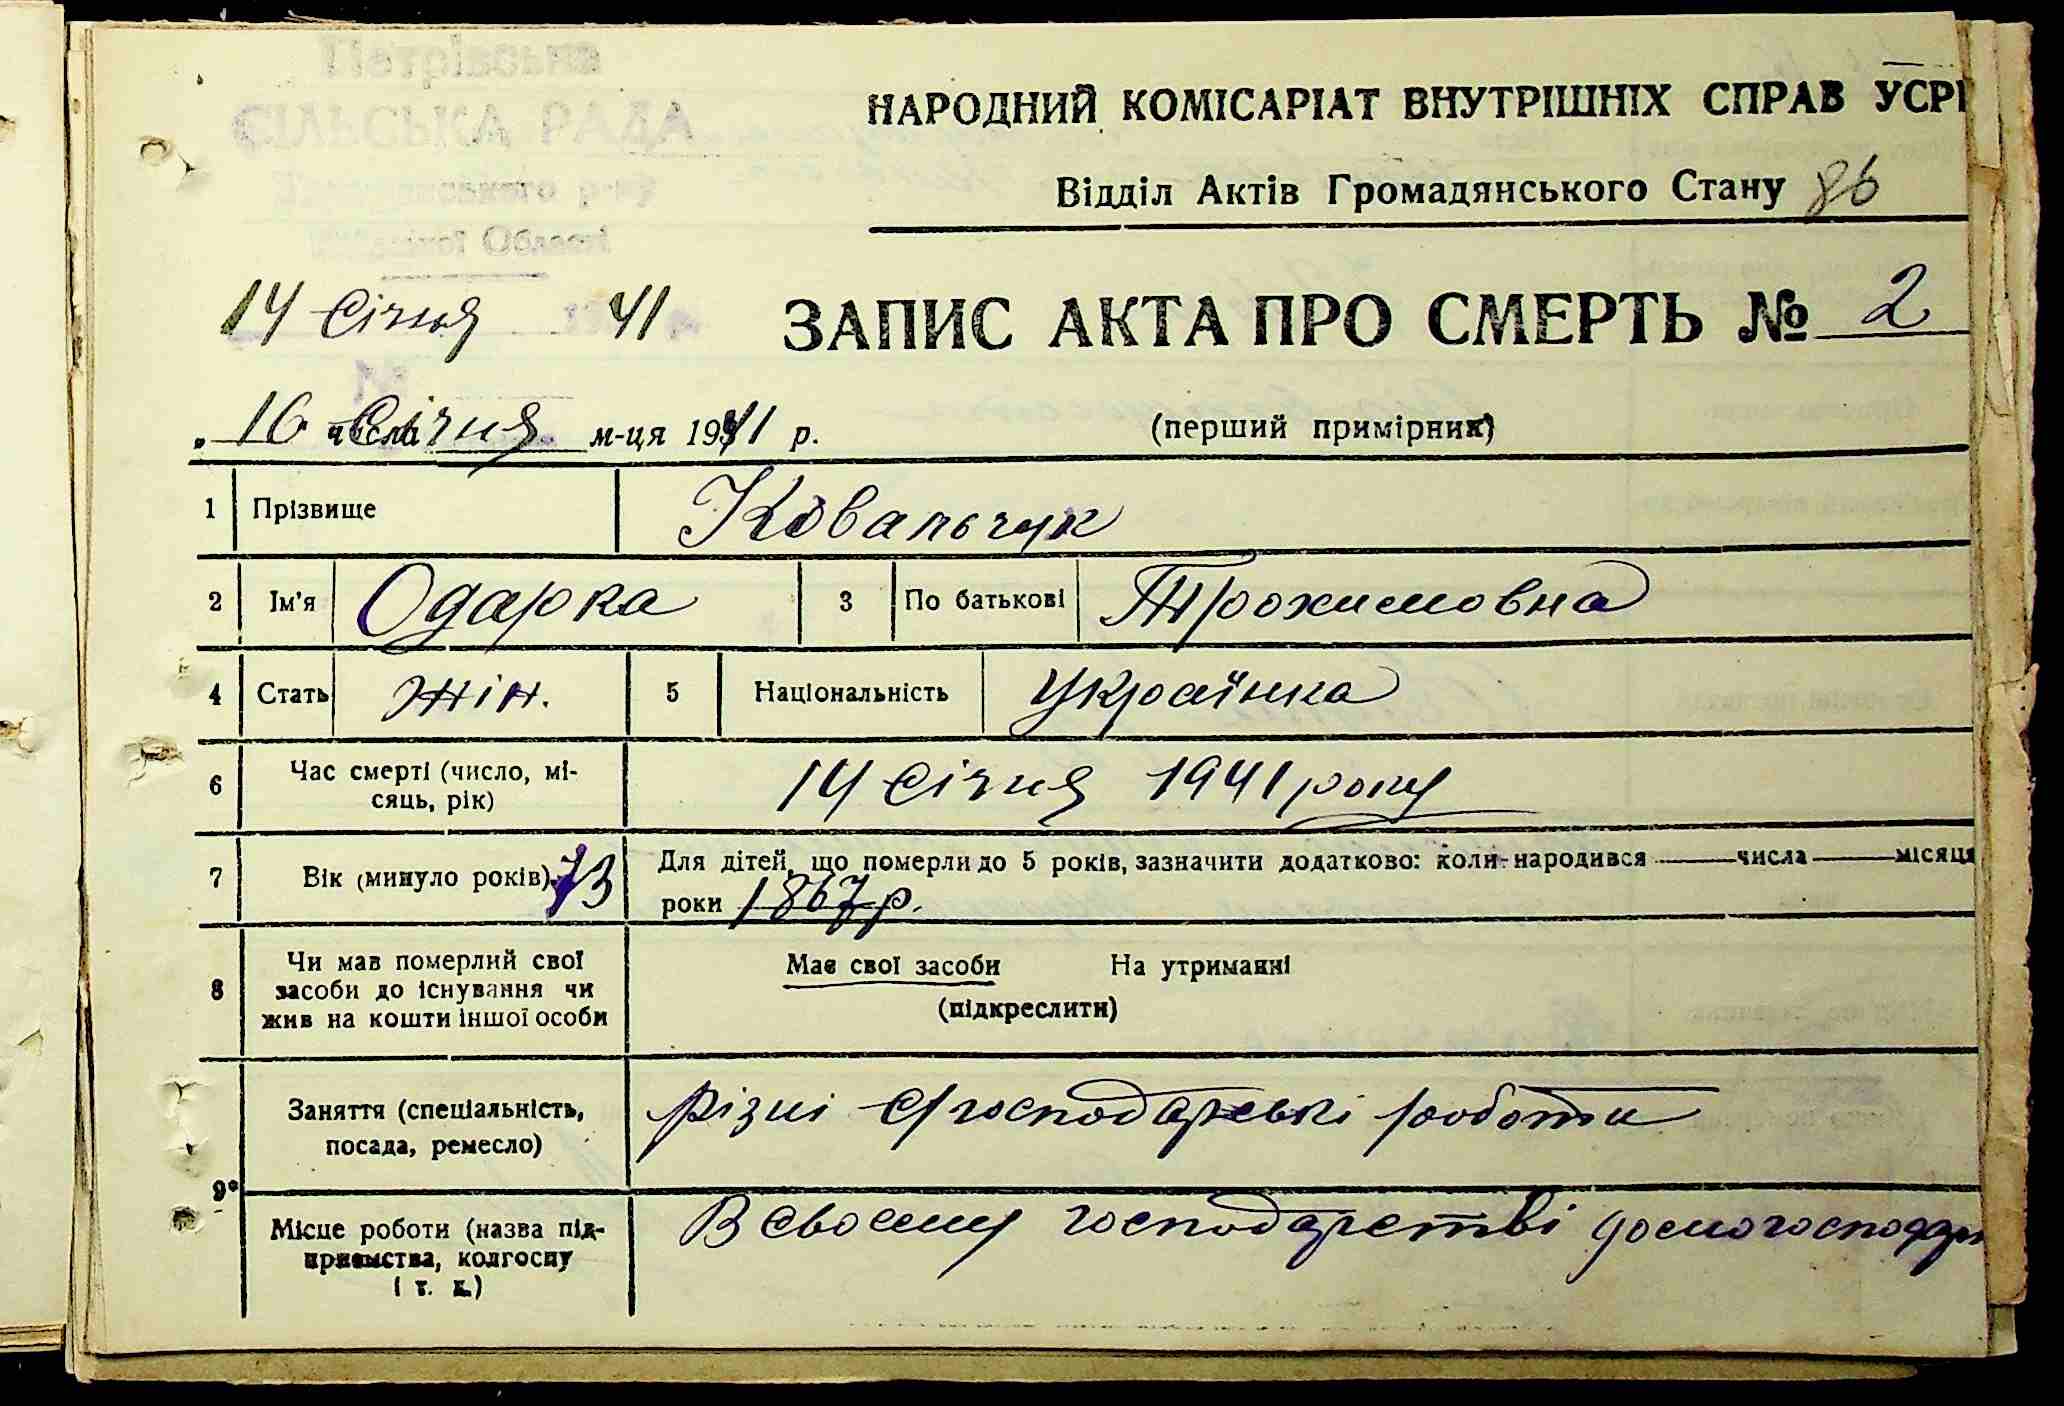 Петрівська
СІЛЬСЬКА РАДА
р-ну
Області
НАРОДНИЙ КОМІСАРІАТ ВНУТРІШНІХ СПРАВ УСРР
Відділ Актів Громадянського Стану 86
14 січня 41
ЗАПИС АКТА ПРО СМЕРТЬ № 2
„ 16 числа січня м-ця 1941 р. (перший примірник)
1 Прізвище Ковальчук
2 Ім'я Одарка 3 По батькові Трохимовна
4 Стать жін. 5 Національність Українка
6 Час смерті (число, мі-
сяць, рік) 14 січня 1941 року
7 Вік (минуло років) 73 Для дітей, що померли до 5 років, зазначити додатково: коли народився числа місяця
роки 1867 р.
8 Чи мав померлий свої
засоби до існування чи
жив на кошти іншої особи
Має свої засоби На утриманні
(підкреслити)
9 Заняття (спеціальність,
посада, ремесло) різні с/господарські роботи
Місце роботи (назва під-
приємства, колгоспу
і т. д.) В своєму господарстві